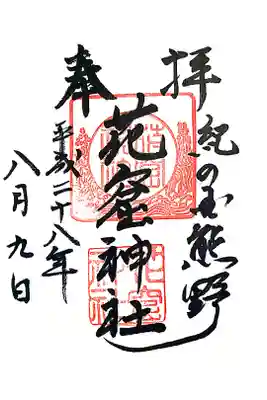 奉
拝
紀の国熊野
花窟神社
平成二十八年
八月九日